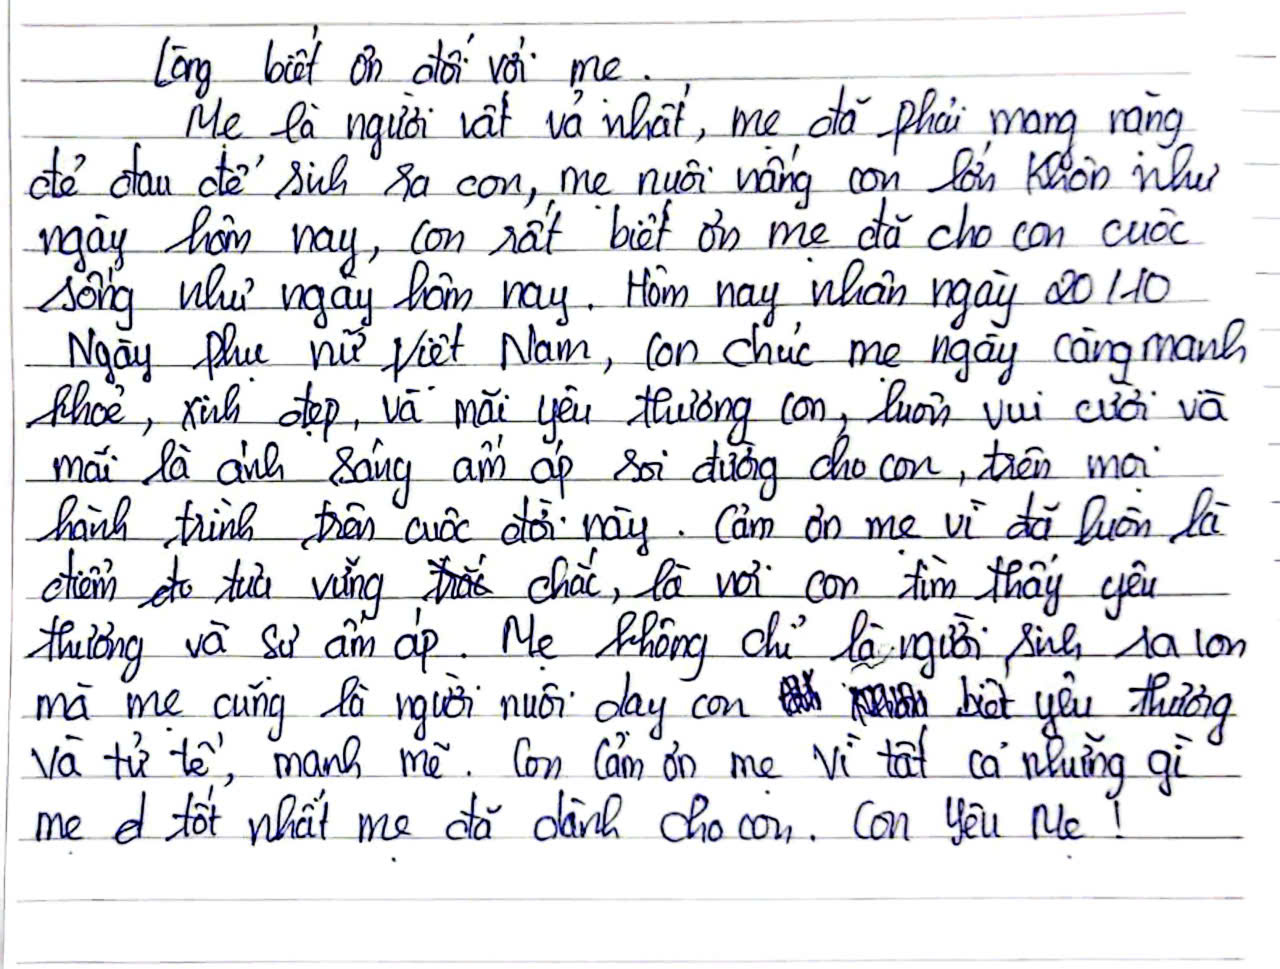 Lòng biết ơn đối với mẹ.
Mẹ là người vất vả nhất, mẹ đã phải mang nặng
đẻ đau để sinh ra con, mẹ nuôi nấng con lớn khôn như
ngày hôm nay, con rất biết ơn mẹ đã cho con cuộc
sống như ngày hôm nay. Hôm nay nhân ngày 20/10
Ngày phụ nữ Việt Nam, con chúc mẹ ngày càng mạnh
khoẻ, xinh đẹp, và mãi yêu thương con, luôn vui cười và
mãi là ánh sáng ấm áp soi đường cho con, trên mọi
hành trình trên cuộc đời này. Cảm ơn mẹ vì đã luôn là
điểm tựa vững chắc, là nơi con tìm thấy yêu
thương và sự ấm áp. Mẹ không chỉ là người sinh ra con
mà mẹ cũng là người nuôi dạy con biết yêu thương
và tử tế, mạnh mẽ. Con cảm ơn mẹ vì tất cả những gì
mẹ đ tốt nhất mẹ đã dành cho con. Con yêu Mẹ!